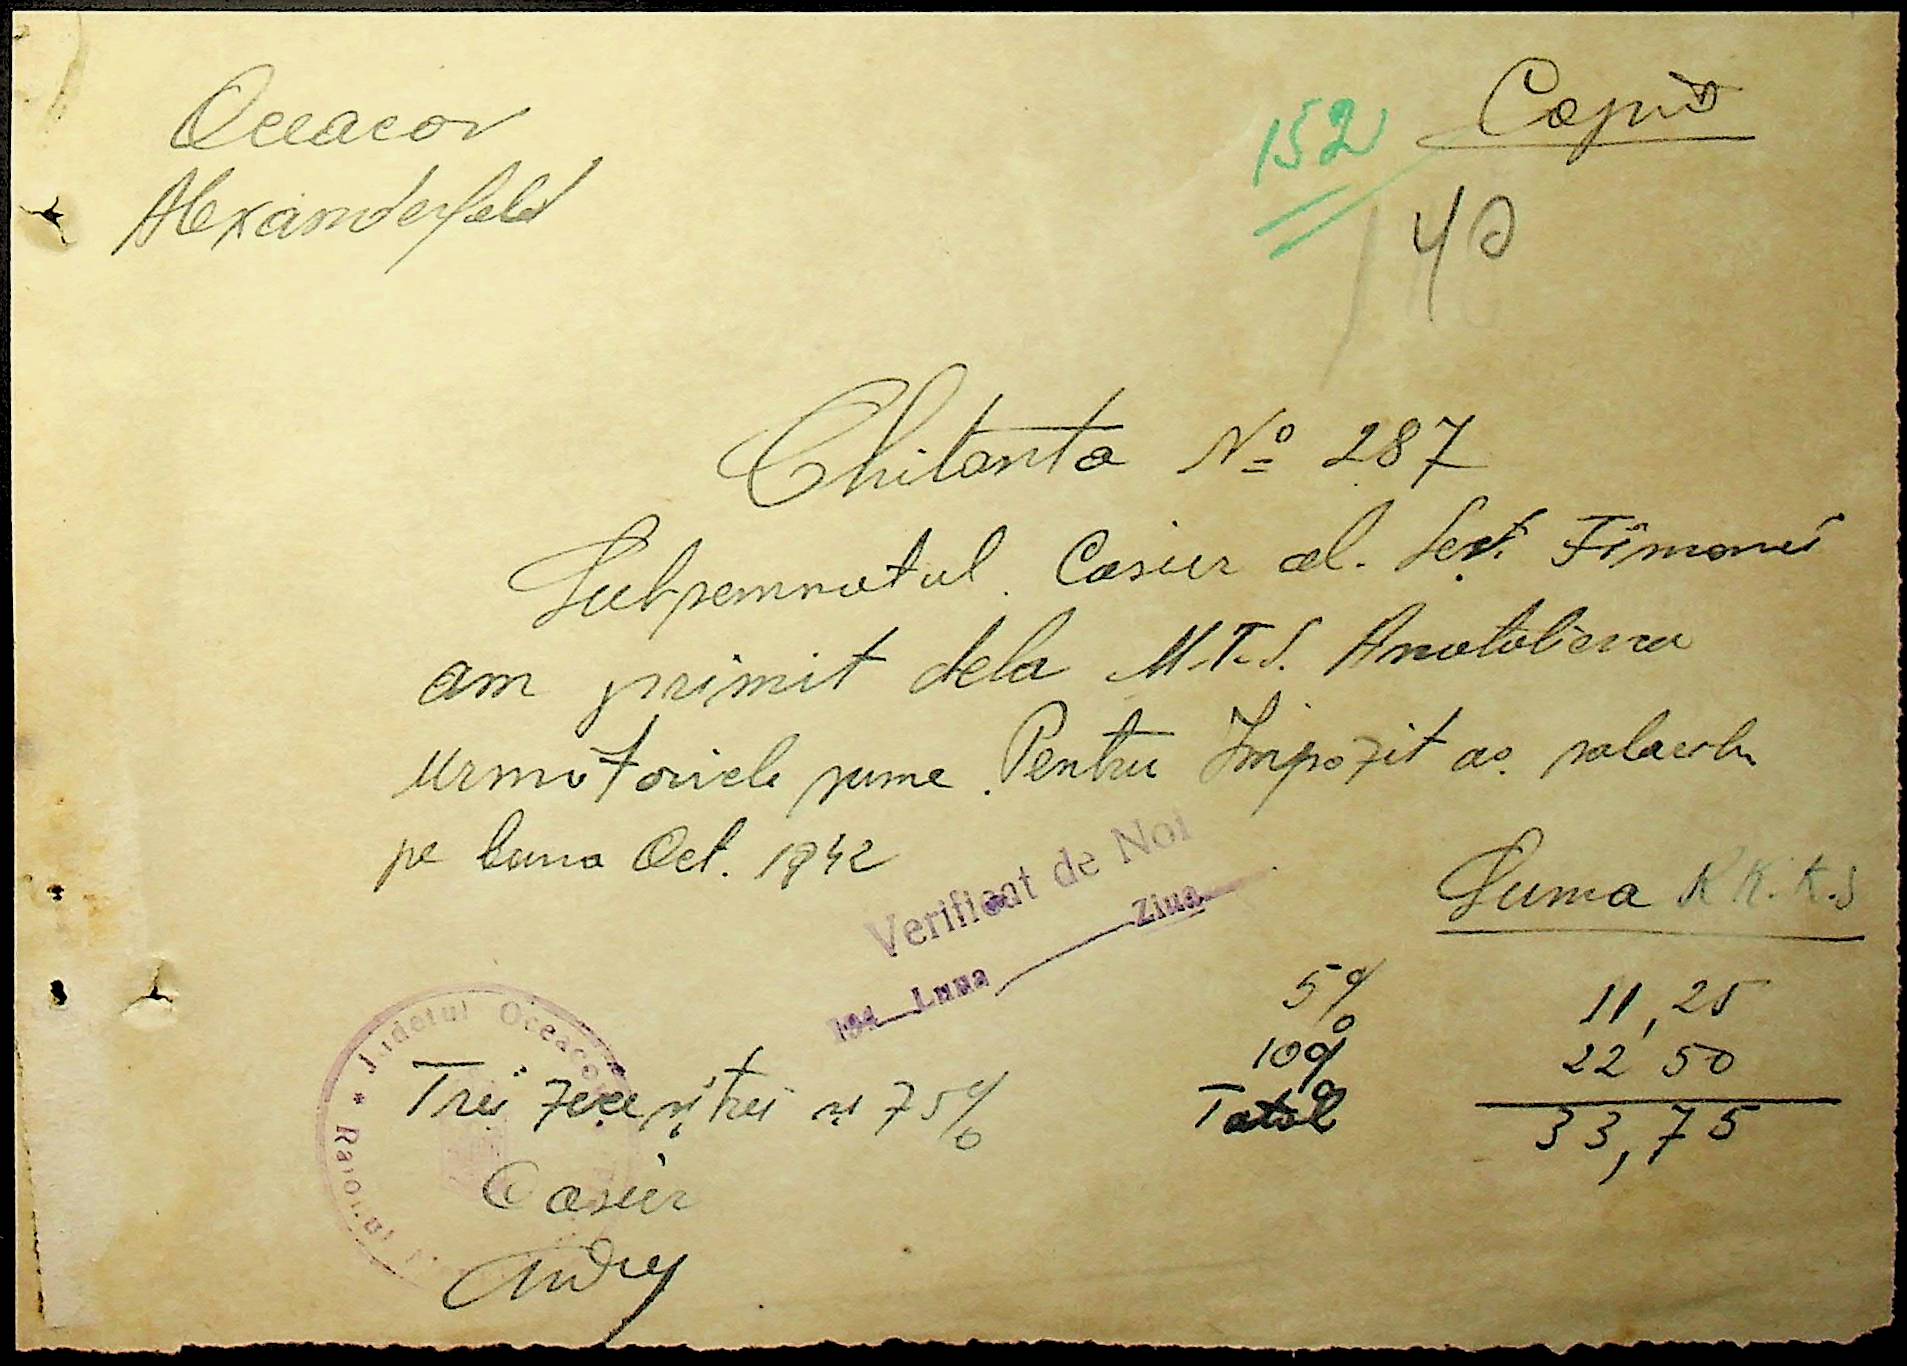 Oceacov
Alexanderfeld
Copie
152
40
Chitanta No 287
Subsemnatul Casier al. Serv. Fimanci
am primit dela M.T.S. Anatolievca
urmatoriele sume. Pentru Impozit as. salarilor
pe luna Oct. 1942
Verificat de Noi
194 Luna Ziua
Suma R.K.K.S
5% 11,25
10% 22 50
Total 33,75
Trei zece și trei si 75%
Casier
Judetul Oceacov
Raionul